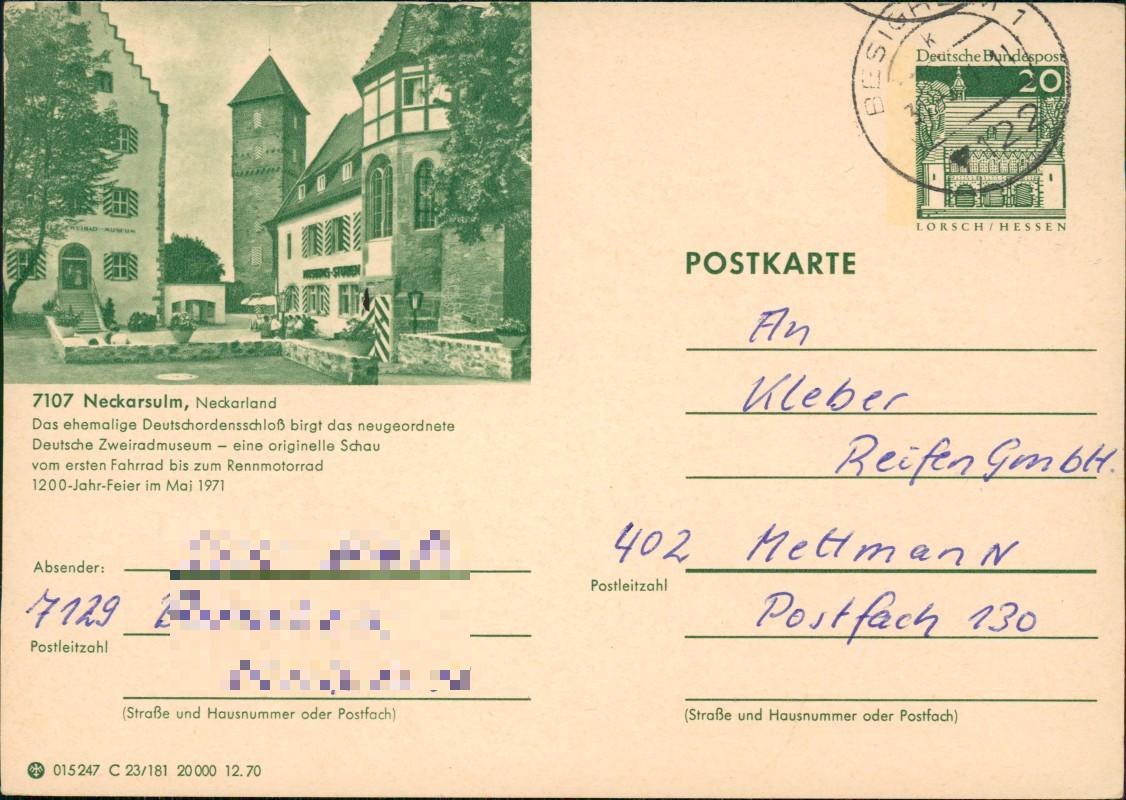 ZWEIRAD-MUSEUM
7107 Neckarsulm, Neckarland
Das ehemalige Deutschordensschloß birgt das neugeordnete
Deutsche Zweiradmuseum – eine originelle Schau
vom ersten Fahrrad bis zum Rennmotorrad
1200-Jahr-Feier im Mai 1971
Absender:
7129
Postleitzahl
(Straße und Hausnummer oder Postfach)
015247 C 23/181 20000 12.70
BESIGHEIM 1
k
7122
Deutsche Bundespost
20
LORSCH/HESSEN
POSTKARTE
An
Kleber
Reifen GmbH.
402 Mettmann
Postleitzahl
Postfach 130
(Straße und Hausnummer oder Postfach)